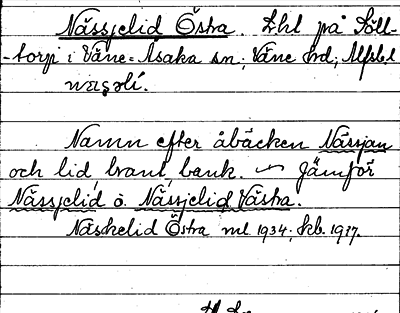 Nässjelid Östra. Lhl på Söll-
-torp i Väne=Åsaka sn; Väne hd; Älfsb.l
Namn efter åbäcken Nässjan
och lid, brant, bank. ~ Jämför
Nässjelid o. Nässjelid Västra.
Näskelid Östra ml 1934; Ekb. 1937.